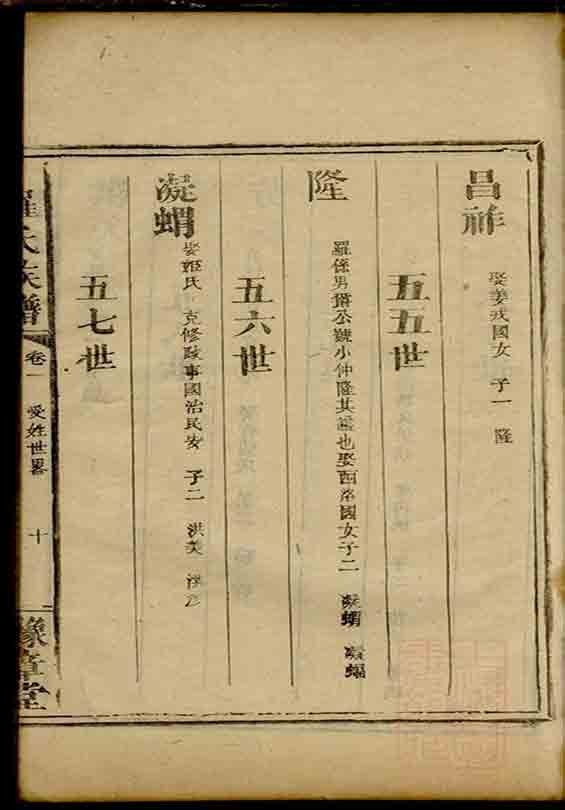 昌祚
娶姜戎國女 子一 隆
五五世
隆
羅係男爵公號小仲隆其諡也娶西洛國女子二 凝蝟 凝蝠
五六世
凝蝟
娶姬氏 克修政事國治民安 子二 洪美
五七世
羅氏族譜 卷一 受姓世畧 十 豫章堂